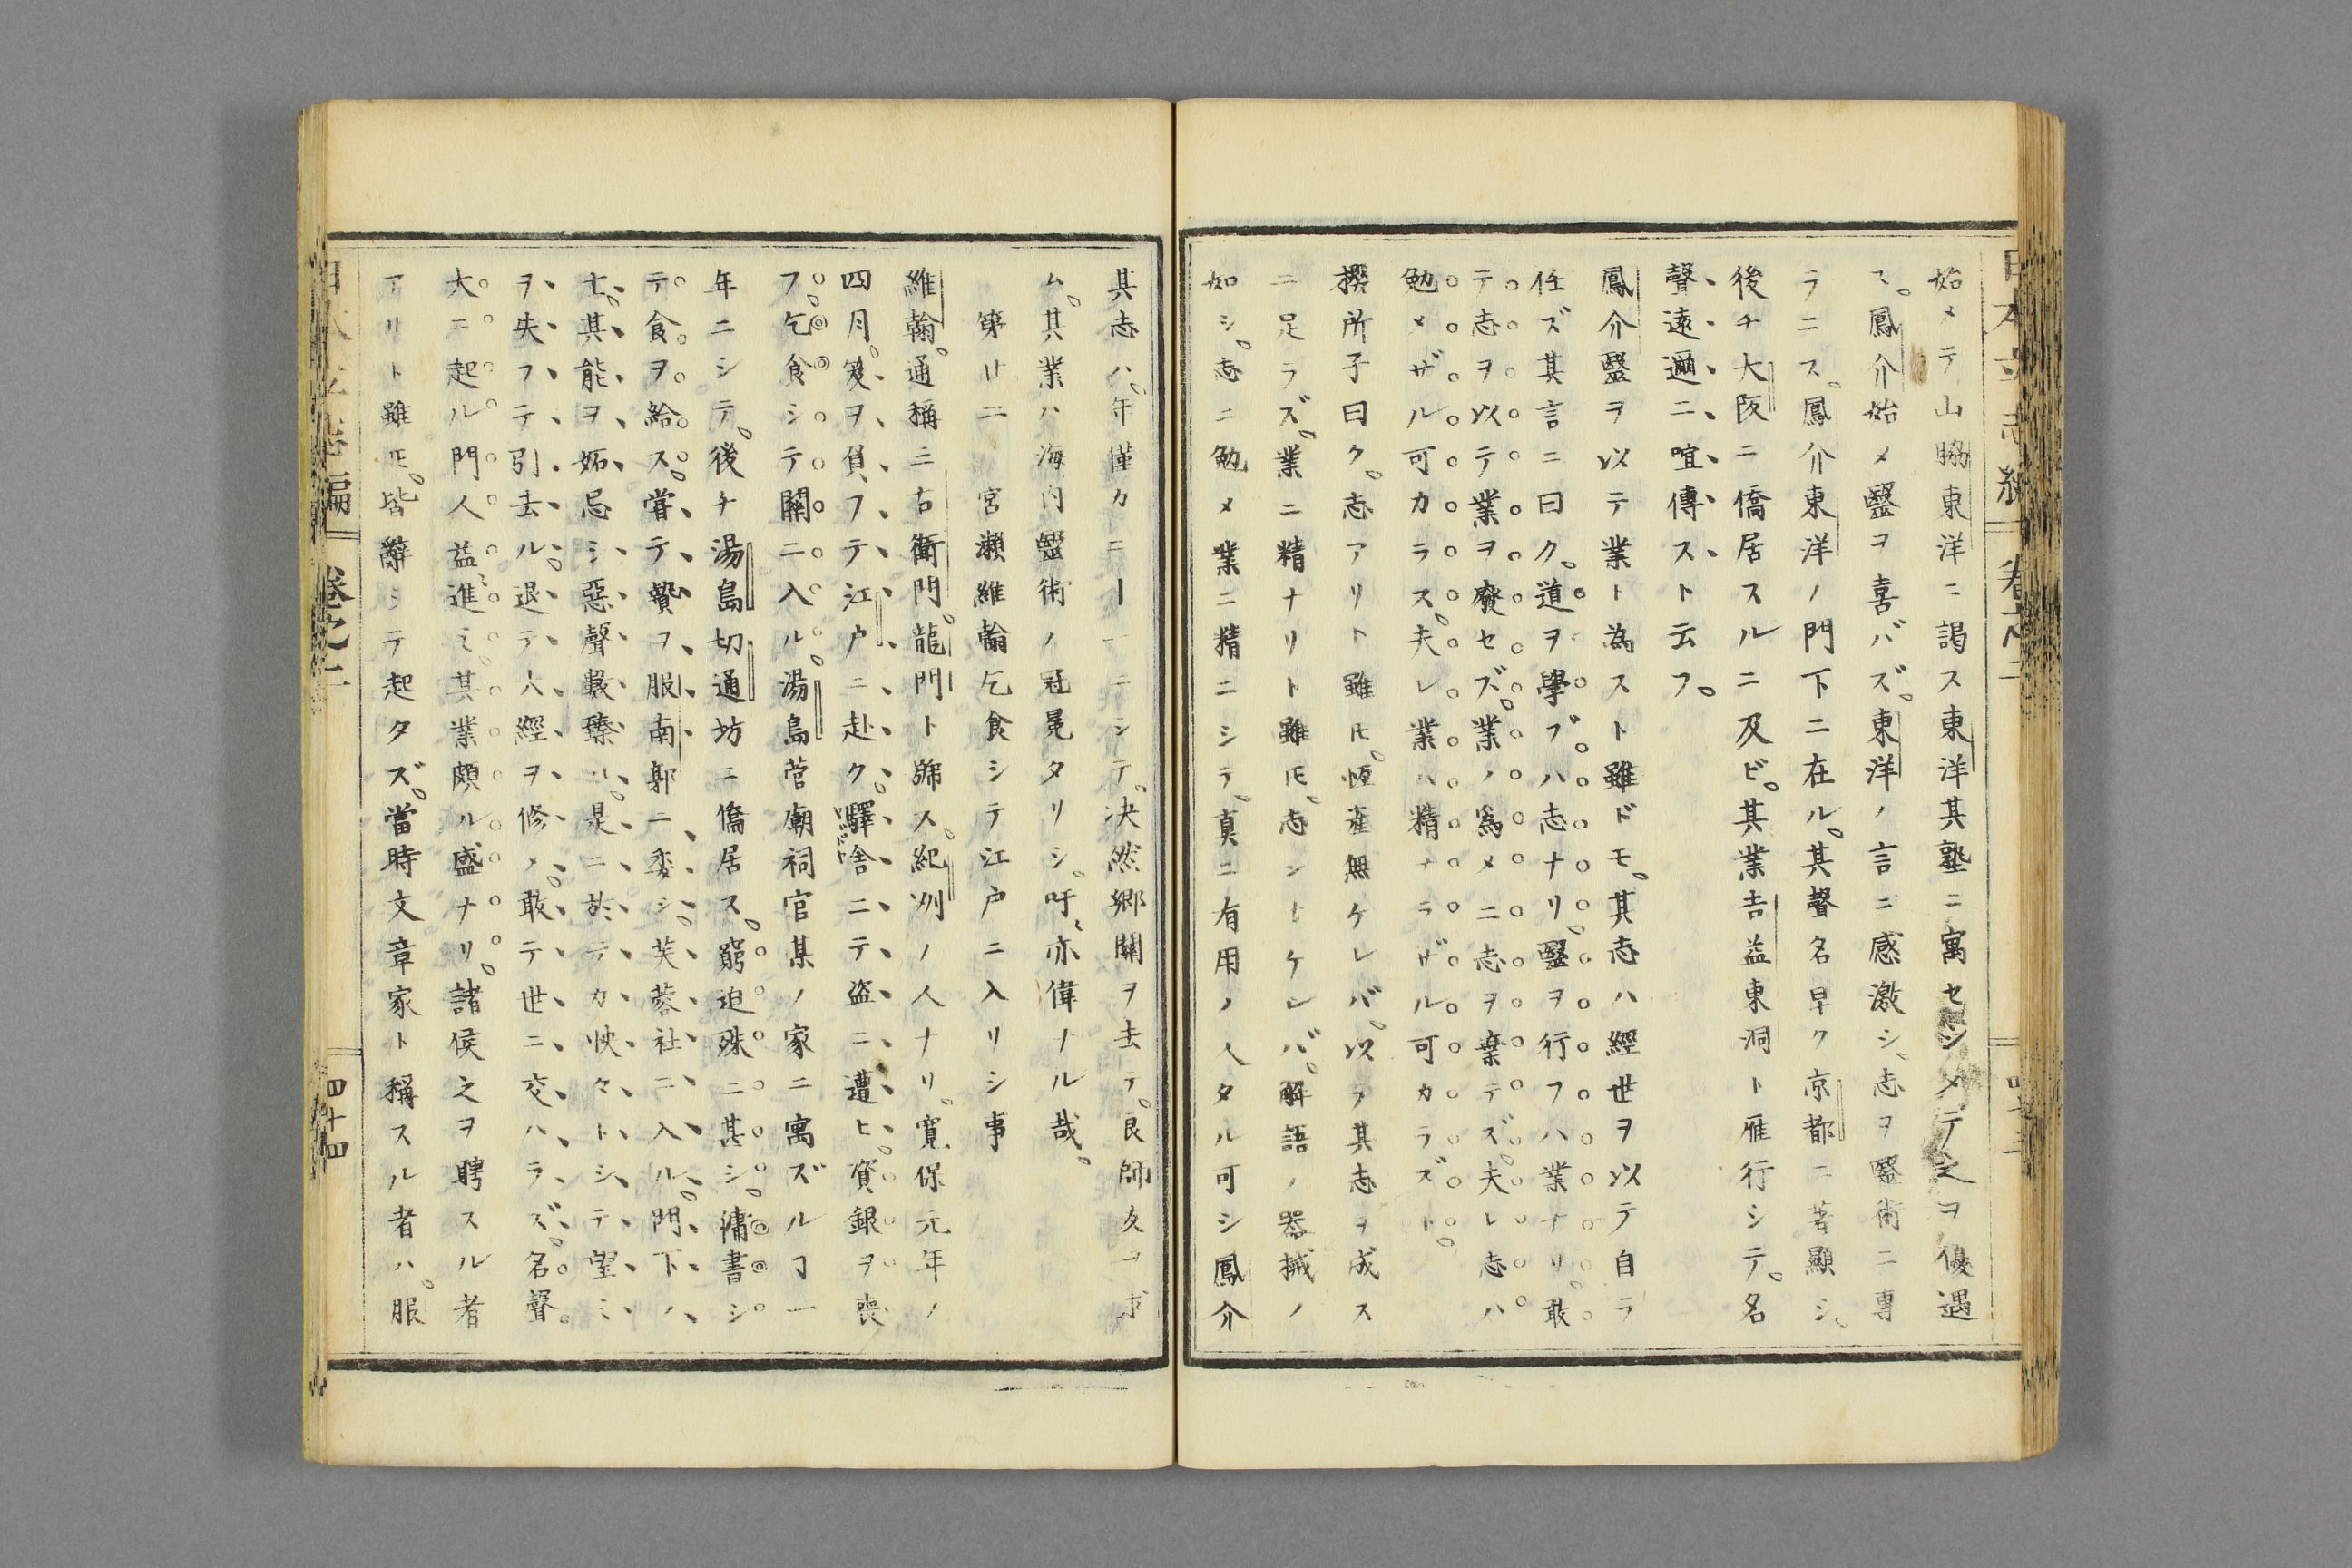 始メテ山脇東洋ニ謁ス東洋其塾ニ寓セシメテ之ヲ優遇
ス。鳳介始メ毉ヲ喜バズ。東洋ノ言ニ感激シ、志ヲ毉術ニ專
ラニス。鳳介東洋ノ門下ニ在ル。其聲名早ク京都ニ著顯シ。
後チ大阪ニ僑居スルニ及ビ。其業吉益東洞ト雁行シテ。名
聲遠邇ニ喧傳スト云フ。
鳳介毉ヲ以テ業ト為スト雖ドモ。其志ハ經世ヲ以テ自ラ
任ズ其言ニ曰ク。道ヲ學ブハ志ナリ。毉ヲ行フハ業ナリ。敢
テ志ヲ以テ業ヲ廢セズ。業ノ為メニ志ヲ棄テズ。夫レ志ハ
勉メザル可カラス。夫レ業ハ精ナラザル可カラズト。
撰所子曰ク。志アリト雖𪜈。恆產無ケレバ。以テ其志ヲ成ス
ニ足ラズ。業ニ精ナリト雖𪜈。志シナケレバ。解語ノ器械ノ
如シ。志ニ勉メ業ニ精ニシテ。真ニ有用ノ人タル可シ鳳介
其志ハ。年僅カニ十一ニシテ。决然郷關ヲ去テ。良師友ヲ求
ム。其業ハ海内毉術ノ冠冕タリシ。吁、亦偉ナル哉。
第廿二 宮瀨維翰乞食シテ江戸ニ入リシ事
維翰。通稱三右衛門。龍門ト號ス。紀州ノ人ナリ。寬保元年ノ
四月。笈ヲ負フテ江戸ニ赴ク。驛舍ニテ盗ニ遭ヒ。資銀ヲ喪
フ。乞食シテ關ニ入ル。湯島菅廟祠官某ノ家ニ寓ズルヿ一
年ニシテ。後チ湯島切通坊ニ僑居ス。窮迫殊ニ甚シ。傭書シ
テ食ヲ給ス。嘗テ贄ヲ服南郭ニ委シ。芙蓉社ニ入ル。門下ノ
士。其能ヲ妬忌シ惡聲數臻ル。是ニ於テカ怏々トシテ望ミ
ヲ失フテ引去ル。退テ六經ヲ修メ。敢テ世ニ交ハラズ。名聲
大ニ起ル門人益進ミ其業頗ル盛ナリ。諸侯之ヲ聘スル者
アリト雖𪜈。皆辭シテ起タズ。當時文章家ト稱スル者ハ。服
卷之二
四十四